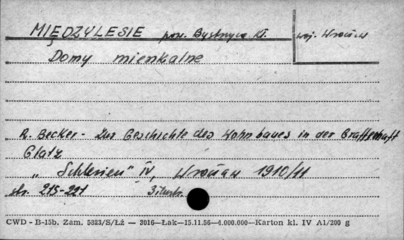 MIĘDZYLESIE pow. Bystrzyca Kł. woj. Wrocław
Domy mieszkalne
R. Becker - Zur Geschichte des Wohnbaues in der Grafschaft
Glatz
"Schlesien" IV, Wrocław 1910/11
str. 215-221 Ilustr.
CWD - B-15b. Zam. 5023/S/Łż — 2016—Łak—15.11.56—4.000.000—Karton kl. IV A1/200 g